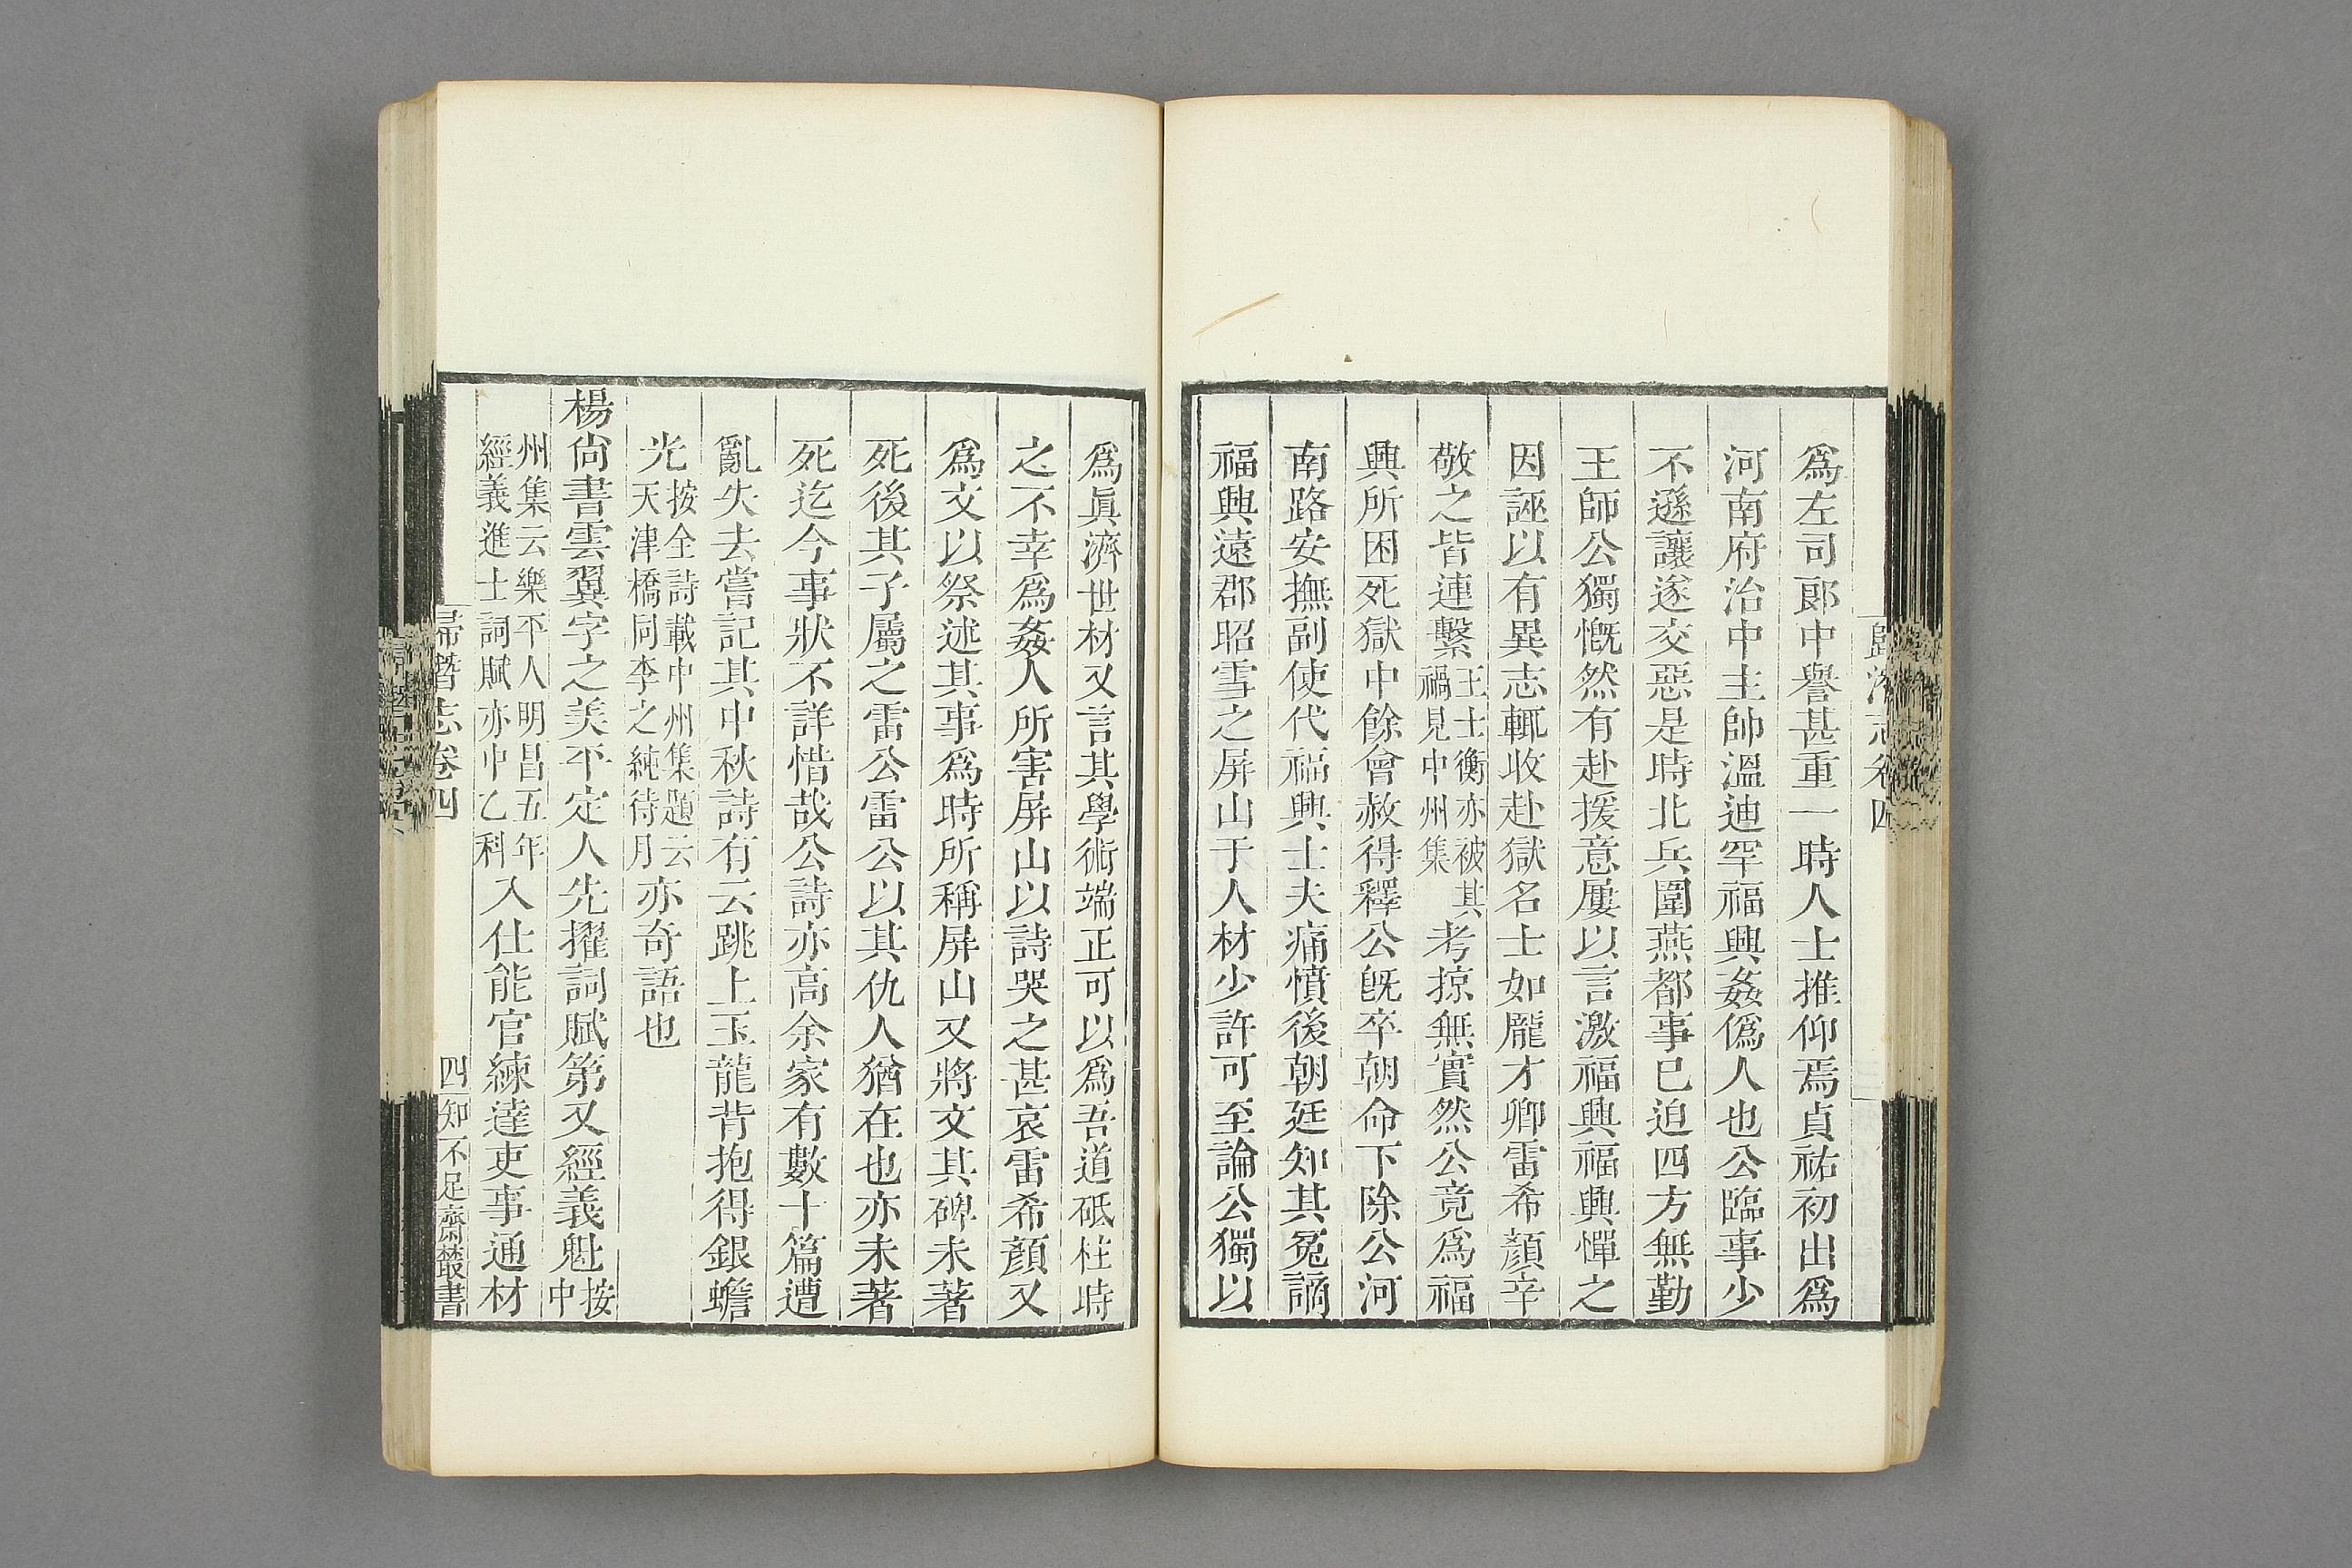 爲左司郎中譽甚重一時人士推仰焉貞祐初出爲
河南府治中主帥溫迪罕福興姦僞人也公臨事少
不遜讓遂交惡是時北兵圍燕都事已迫四方無勤
王師公獨慨然有赴援意屢以言激福興福興憚之
因誣以有異志輒收赴獄名士如龐才卿雷希顏辛
敬之皆連繫王士衡亦被其禍見中州集考掠無實然公竟爲福
興所困死獄中餘會赦得釋公旣卒朝命下除公河
南路安撫副使代福興士夫痛憤後朝廷知其冤謫
福興遠郡昭雪之屏山于人材少許可至論公獨以
爲眞濟世材又言其學術端正可以爲吾道砥柱時
之不幸爲姦人所害屏山以詩哭之甚哀雷希顏又
爲文以祭述其事爲時所稱屏山又將文其碑未著
死後其子屬之雷公雷公以其仇人猶在也亦未著
死迄今事狀不詳惜哉公詩亦高余家有數十篇遭
亂失去嘗記其中秋詩有云跳上玉龍背抱得銀蟾
光按全詩載中州集題云天津橋同李之純待月亦奇語也
楊尙書雲翼字之美平定人先擢詞賦第又經義魁按中
州集云樂平人明昌五年經義進士詞賦亦中乙科入仕能官練達吏事通材
歸潛志卷四
四
知不足齋叢書